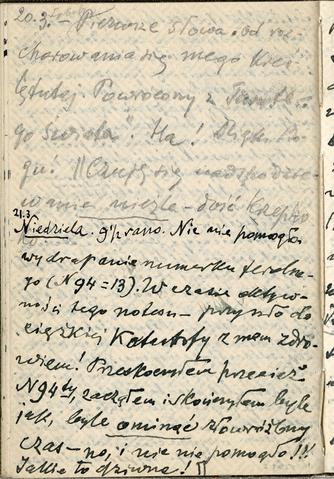 20.3. – Pierwsze słowa od roz-
chorowania się mego kre-
ślę tutaj. Powrócony z "Tamte-
go świata". Ha! Dzięki Bo-
gu! Czuję się nadspodzie-
wanie nieźle – dość krzepko
21.3
Niedziela. 9½ rano. Nic nie pomogło
wydrapanie numerku feralne-
go (N 94 = 13). W czasie aktyw-
ności tego notesu – przyszło do
ciężkiej Katastrofy z mem zdro-
wiem! Przeskoczyłem przecież
N 94ty, zacząłem i skończyłem byle
jak, byle ominąć złowróżbny
czas – no, i nic nie pomogło!!!
Jakie to dziwne!